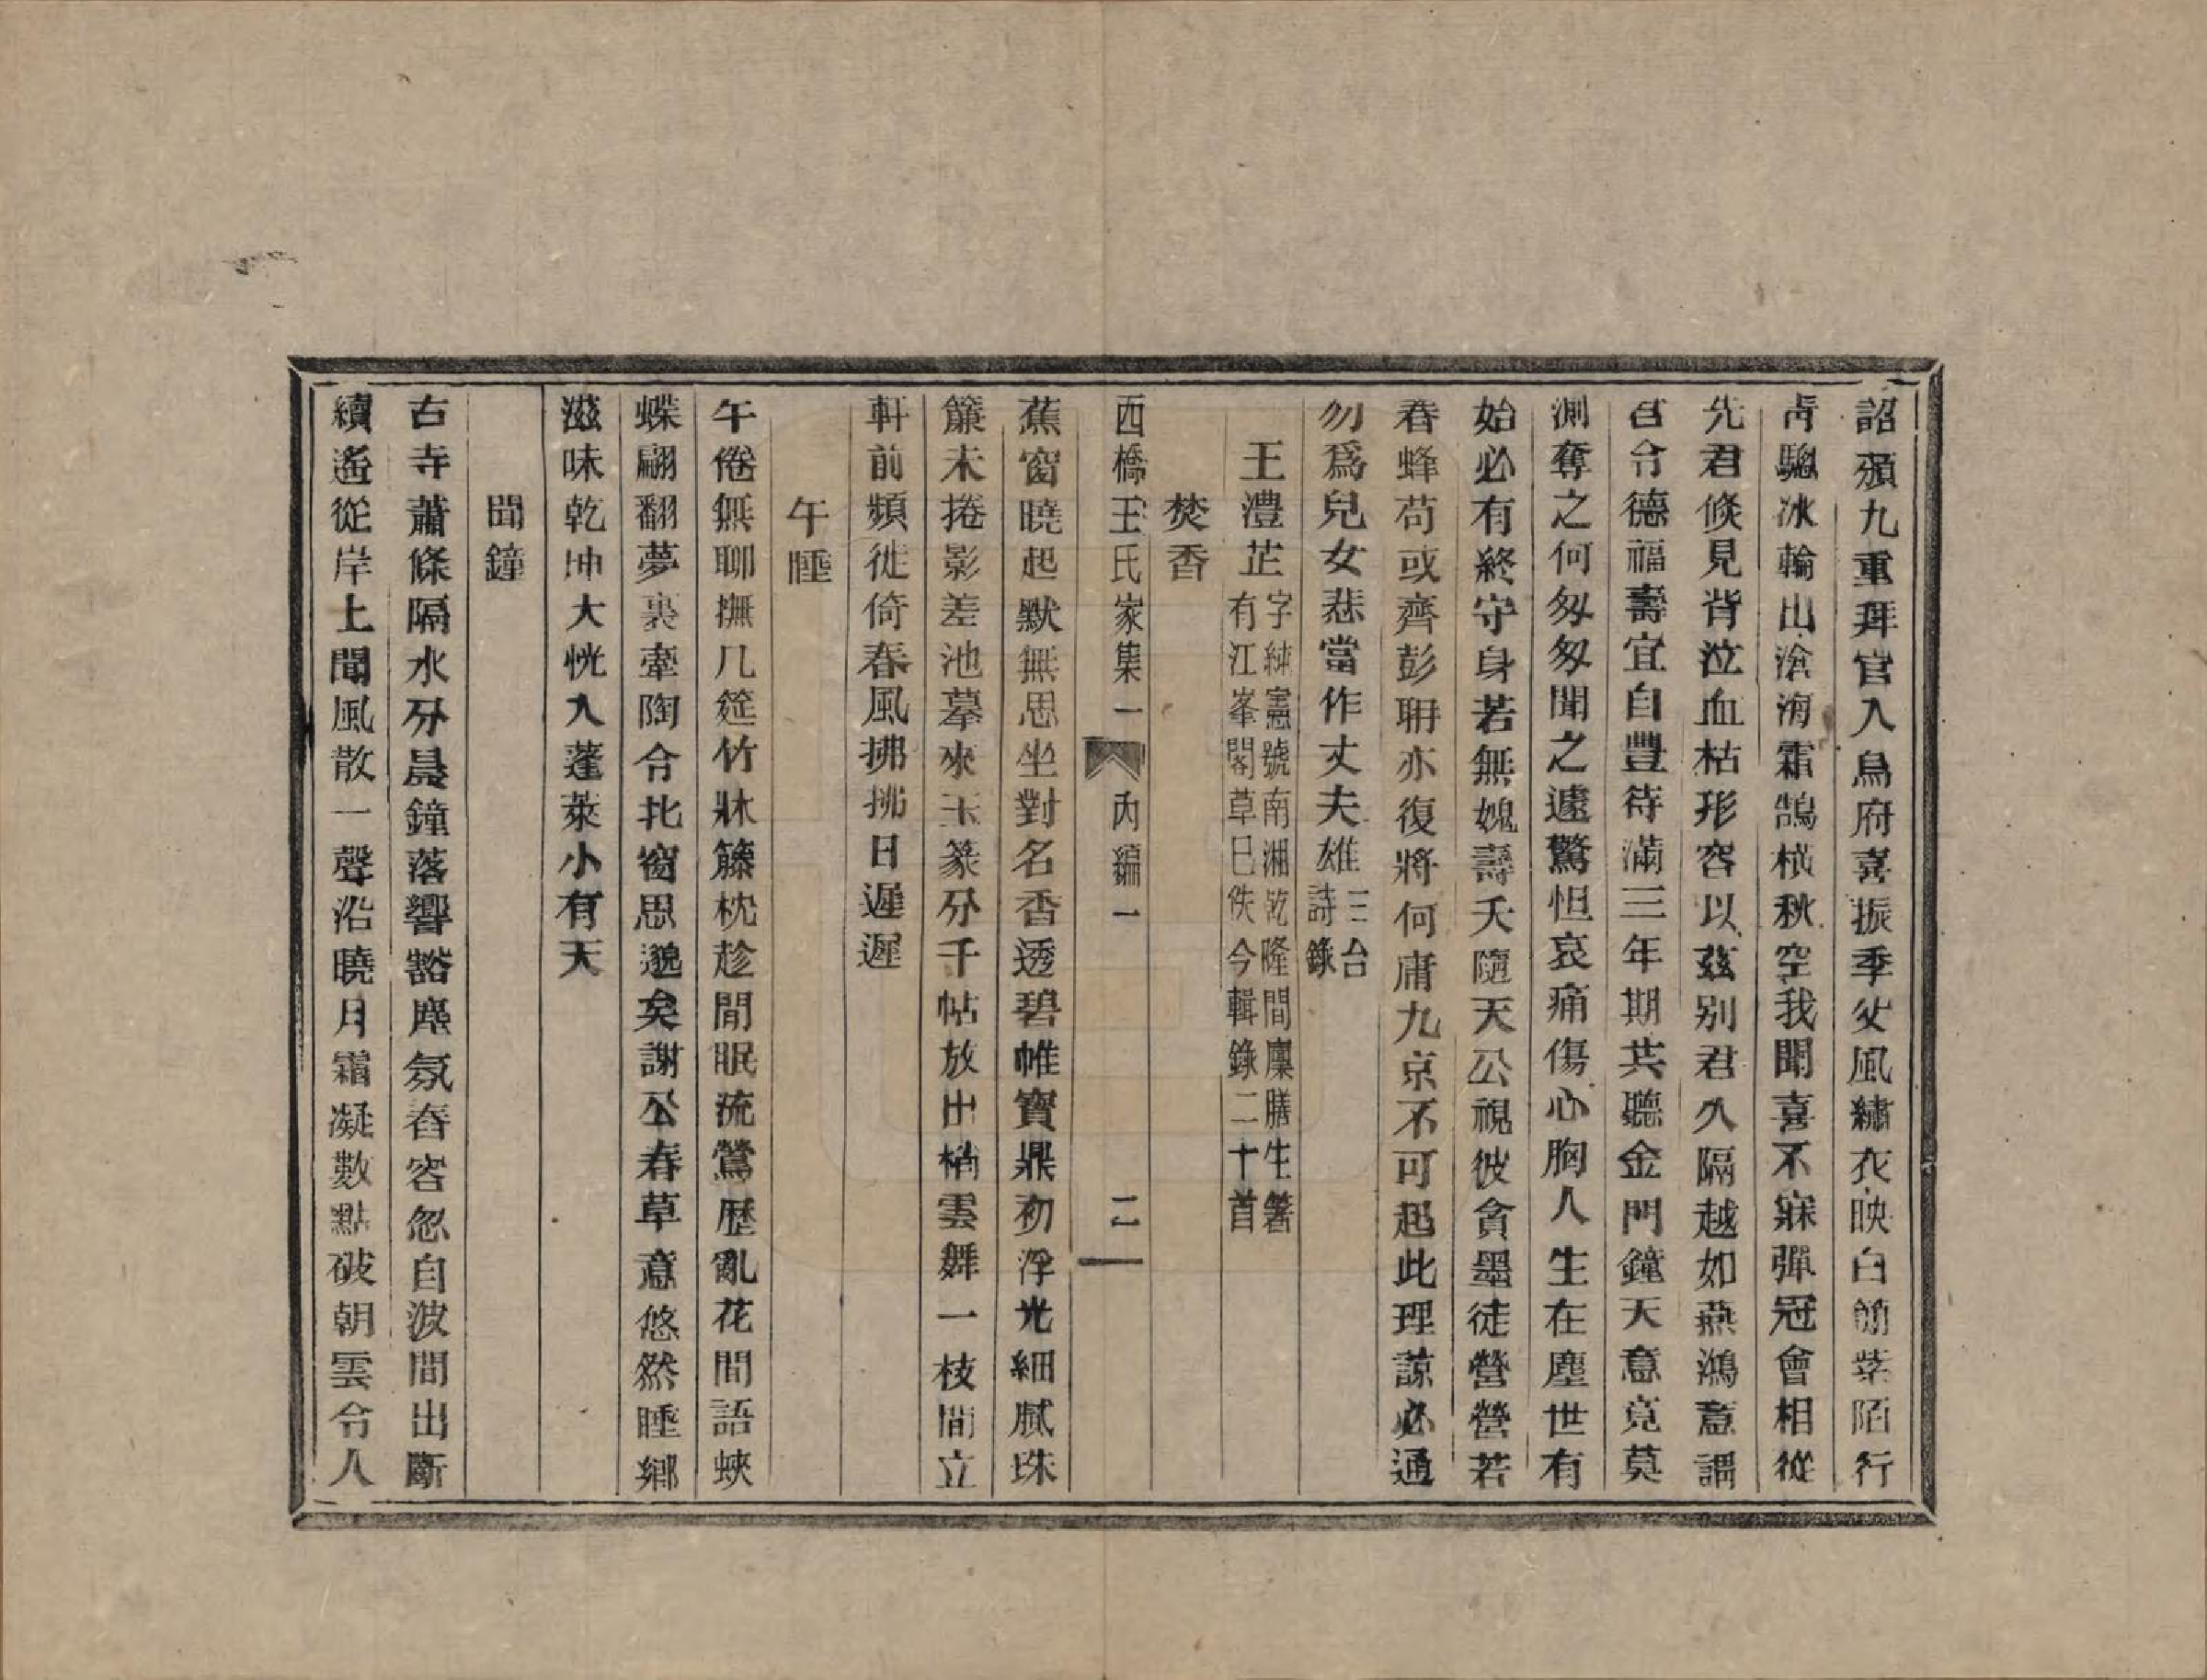 詔頒九重拜官入烏府喜振季父風繡衣映白簡紫陌行
青驄冰輪出滄海霜鶻橫秋空我聞喜不寐彈冠會相從
先君倏見背泣血枯形容以茲别君久隔越如燕鴻意謂
君令德福壽宜自豐待滿三年期共聽金門鐘天意竟莫
測奪之何匆匆聞之遽驚怛哀痛傷心胸人生在塵世有
始必有終守身若無媿壽夭隨天公視彼貪墨徒營營若
春蜂苟或齊彭聃亦復將何庸九京不可起此理諒必通
勿爲兒女悲當作丈夫雄三台詩錄
王澧芷字紉蕙號南湘乾隆間廩膳生箸有江峯閣草已佚今輯錄二十首
焚香
西橋王氏家集一 內編一 二
蕉窗曉起默無思坐對名香透碧帷寶鼎初浮光細膩珠
簾未捲影差池摹來玉篆分千帖放出梢雲舞一枝間立
軒前頻徙倚春風拂拂日遲遲
午睡
午倦無聊撫几筵竹牀籐枕趁閒眠流鶯歷亂花間語蛺
蝶翩翻夢裏牽陶令北窗思邈矣謝公春草意悠然睡鄉
滋味乾坤大恍入蓬萊小有天
聞鐘
古寺蕭條隔水分晨鐘落響豁塵氛舂容忽自波間出斷
續遙從岸上聞風散一聲沿曉月霜凝數點破朝雲令人